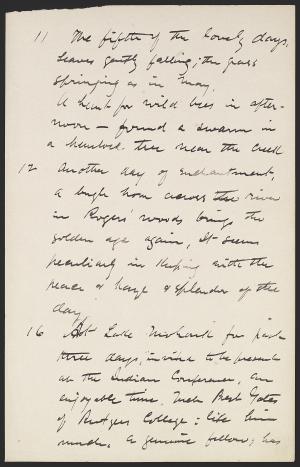 11 The fifth of the lovely days,
leaves gently falling; the grass
springing as in May.
A hunt for wild bees in after-
noon – found a swarm in
a hemlock tree near the creek
12 Another day of enchantment,
a bugle horn across the river
in Rogers' woods brings the
golden age again, it seems
peculiarly in keeping with the
peace & haze & splendor of the
day
16 At Lake Mohonk for past
three days, invited to be present
at the Indian Conference, an
enjoyable time. Met Prest Gates
of Rutgers College; like him
much, a genuine fellow; has